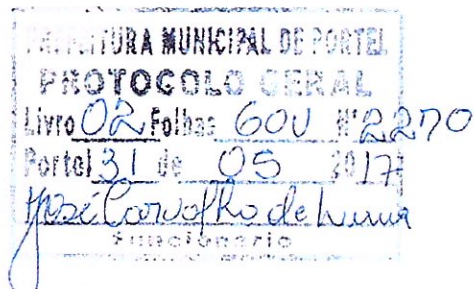 PREFEITURA MUNICIPAL DE PORTEL
PROTOCOLO GERAL
Livro 02 Folhas 60V Nº 2270
Portel 31 de 05 2017
José Carvalho de
Funcionario